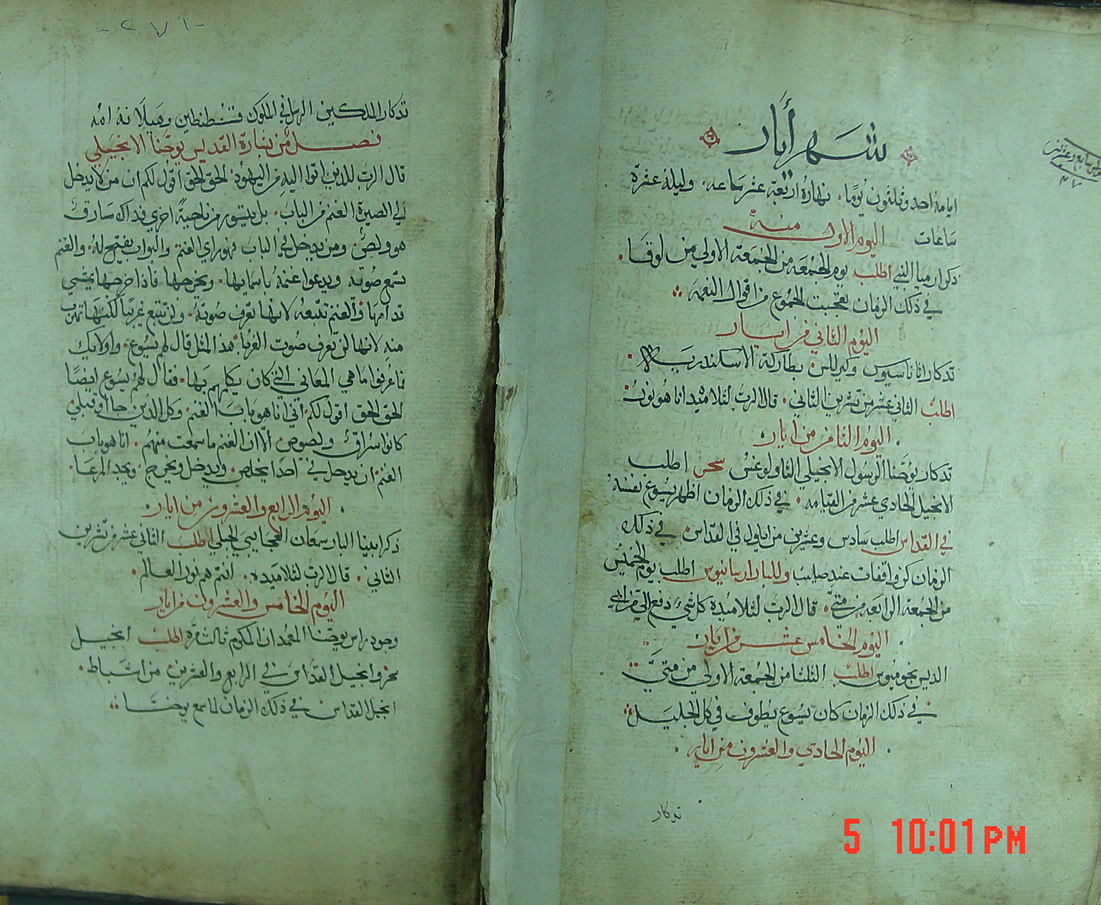 شهر أيار
ايامه احد وثلثون يومًا. نهاره اربعة عشر ساعه. وليله عشرة
ساعات اليوم الاول منه
ذكر ارميا النبي اطلب يوم الجمعه من الجمعة الاولى من لوقا.
في ذلك الزمان تعجبت الجموع من اقوال النعمه
اليوم الثاني من ايار
تدكار اتاناسيوس وكيرللس بطاركة الاسكندريه
اطلب الثاني عشر من تشرين الثاني. قال الرب لتلاميذه انا هو
اليوم الثامن من ايار
تدكار يوحنا الرسول الانجيلي الثاولوغس سحر اطلب
الانجيل الحادي عشر من القيامه. في ذلك الزمان اظهر يسوع نفسه
في القداس اطلب سادس وعشرين من ايلول في القداس. في ذلك
الزمان كن واقفات عند صليب وللبار ارسانيوس اطلب يوم الخميس
من الجمعه الرابعه من متي. قال الرب لتلاميذه كل شيء دفع الي من ابي
اليوم الخامس عشر من ايار
اطلب الثلثا من الجمعة الاولى من متي
في ذلك الزمان كان يسوع يطوف في كل الجليل
اليوم الحادي والعشرون من ايار
تدكار
-٢٧١-
تدكار الملكين في الملوك قسطنطين وهيلانه امه
فصل من بشارة القديس يوحنا الانجيلي
قال الرب للذين اتوا اليه من اليهود. الحق الحق اقول لكم ان من لا يدخل
الي الصيرة الغنم من الباب. بل يتسور من ناحية اخري فذاك سارق
هو ولص. ومن يدخل من الباب فهو راعي الغنم. والبواب يفتح له. والغنم
تسمع صوته ويدعوا غنمه باسمايها. ويخرجها. فاذا خرجها يمشي
قدامها والغنم تتبعه لانها تعرف صوته. ولن تتبع غريبًا لكنها تهرب
منه لانها لن تعرف صوت الغربا. هذا المثل قال لهم يسوع. واولايك
فما عرفوا ما هي المعاني التي كان يكلمهم بها. فقال لهم يسوع ايضًا
الحق الحق اقول لكم. اني انا هو باب الغنم. وكل الذين جاوا قبلي
كانوا سراق ولصوص. الا ان الغنم ما سمعت منهم. انا هو باب
الغنم. ان يدخل بي احد يخلص. ويدخل ويخرج. ويجد المرعا.
اليوم الرابع والعشرون من ايار
ذكر ابينا البار سمعان العجايبي الجبلي اطلب الثاني عشر من تشرين
الثاني. قال الرب لتلاميذه. انتم هم نور العالم.
اليوم الخامس والعشرون من ايار
وجود راس يوحنا المعمدان المكرم ثالث مرة اطلب انجيل
سحر وانجيل القداس في الرابع والعشرين من اشباط.
انجيل القداس في ذلك الزمان لما سمع يوحنا